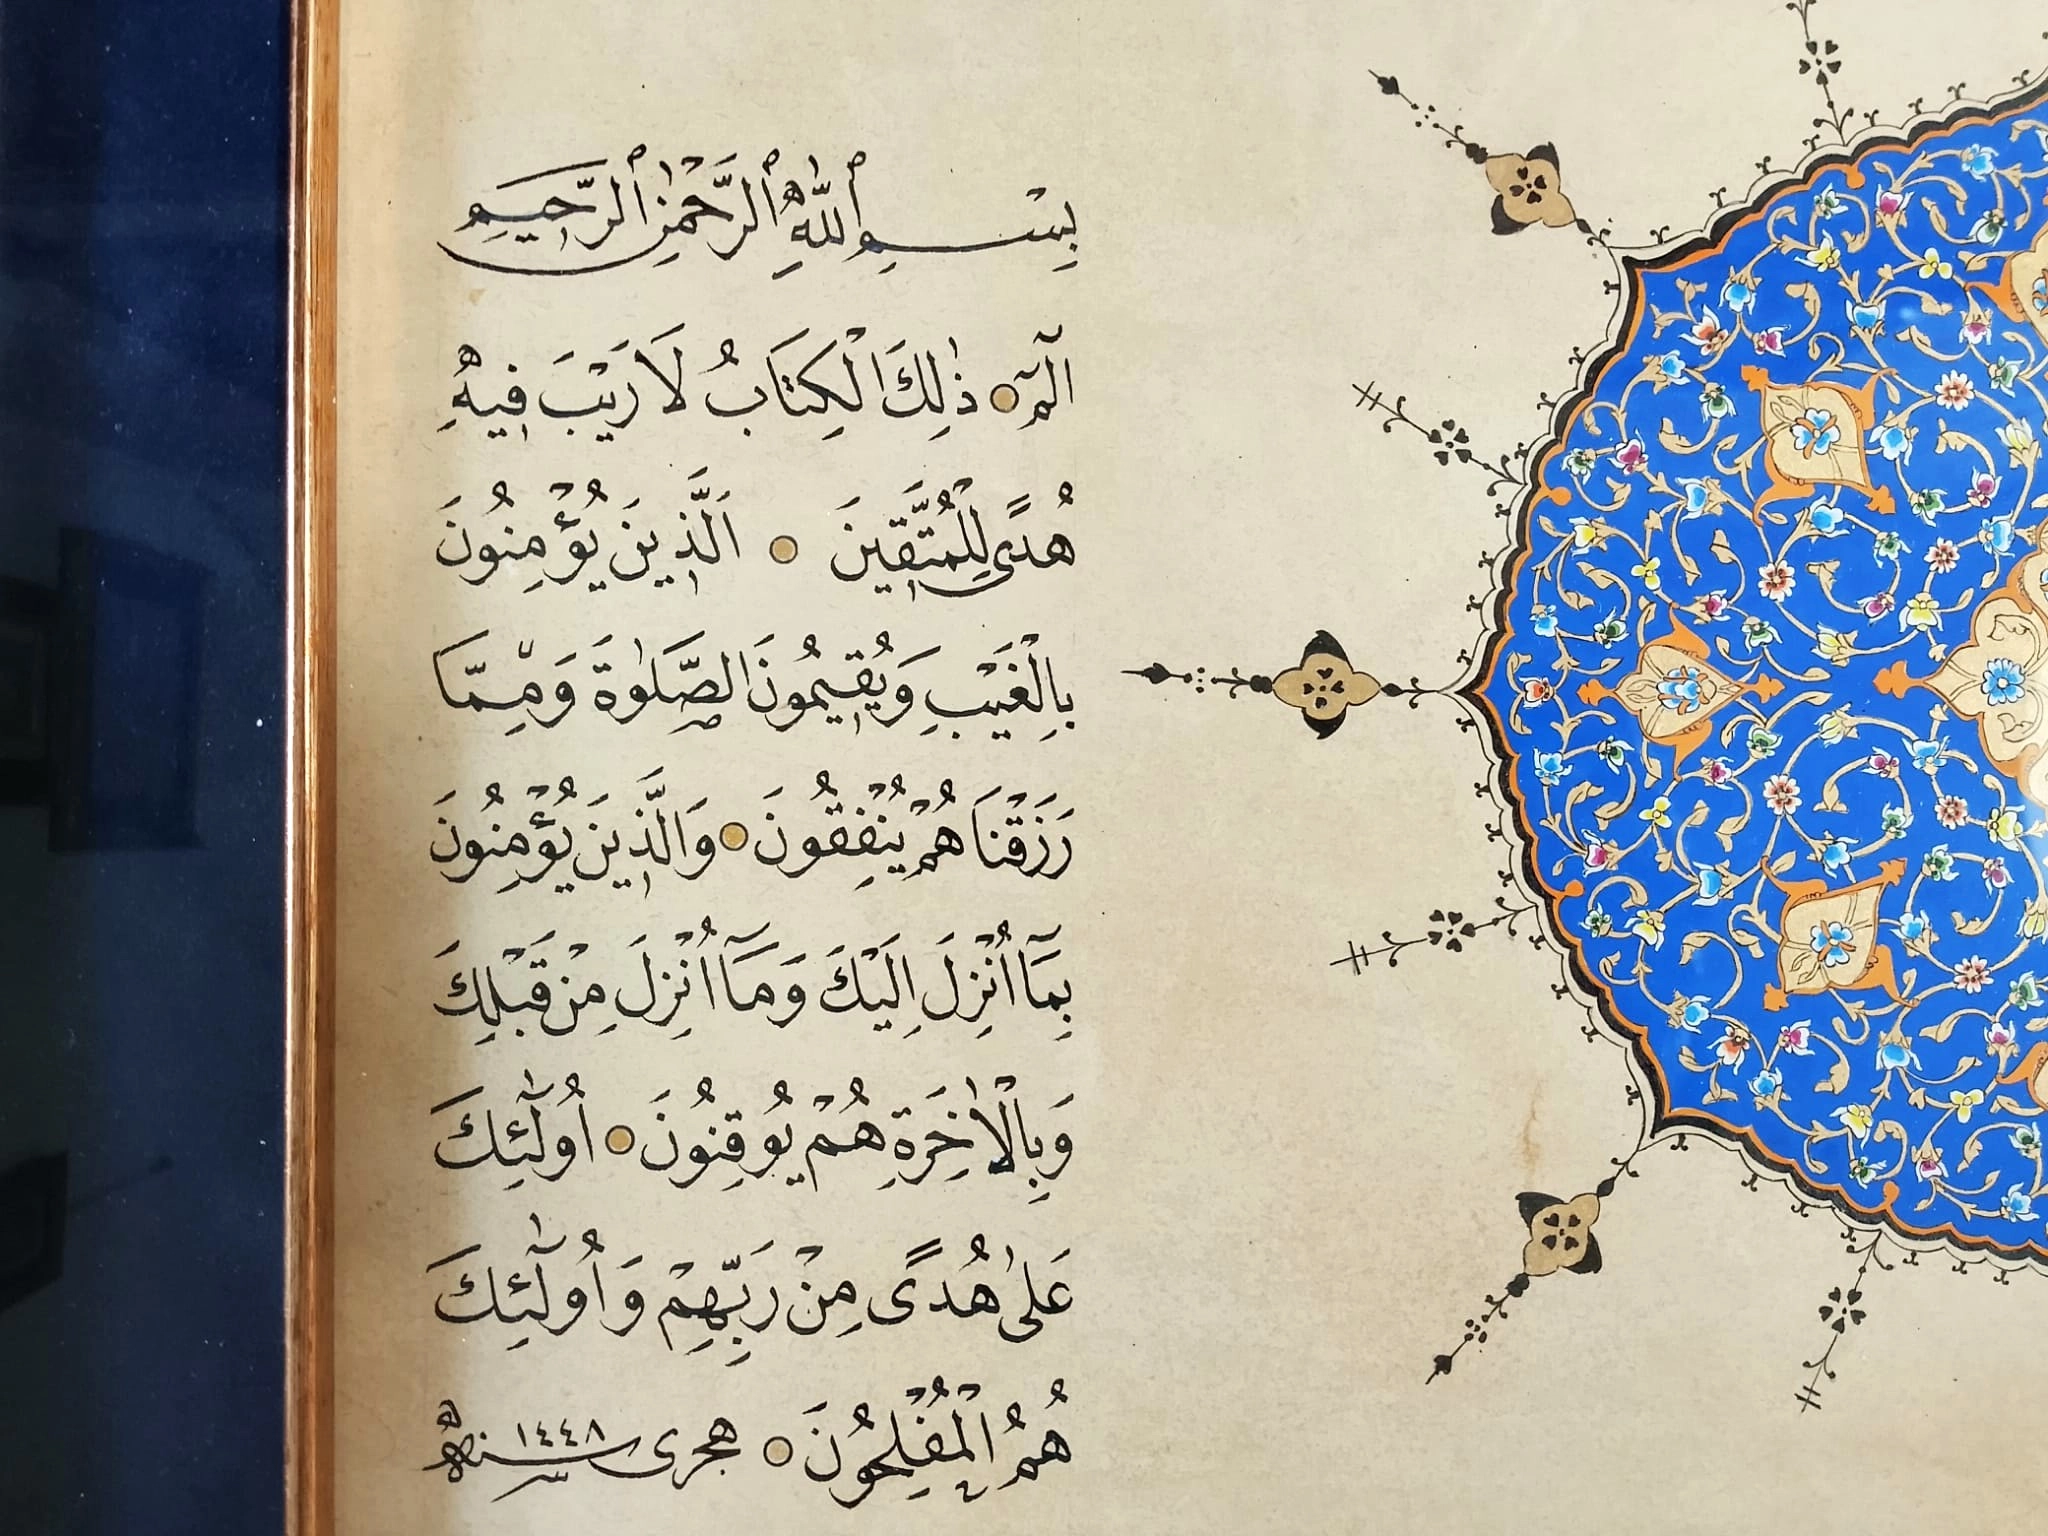 بِسْمِ ٱللّٰهِ ٱلرَّحْمٰنِ ٱلرَّحِيمِ
الٓمٓ ۝ ذٰلِكَ الْكِتَابُ لَا رَيْبَ فِيهِ
هُدًى لِلْمُتَّقِينَ ۝ اَلَّذِينَ يُؤْمِنُونَ
بِالْغَيْبِ وَيُقِيمُونَ الصَّلٰوةَ وَمِمَّا
رَزَقْنَاهُمْ يُنْفِقُونَ ۝ وَالَّذِينَ يُؤْمِنُونَ
بِمَٓا اُنْزِلَ اِلَيْكَ وَمَٓا اُنْزِلَ مِنْ قَبْلِكَ
وَبِالْاٰخِرَةِ هُمْ يُوقِنُونَ ۝ اُولٰٓئِكَ
عَلٰى هُدًى مِنْ رَبِّهِمْ وَاُولٰٓئِكَ
هُمُ الْمُفْلِحُونَ ۝ هجرى سنه ١٤٤٨